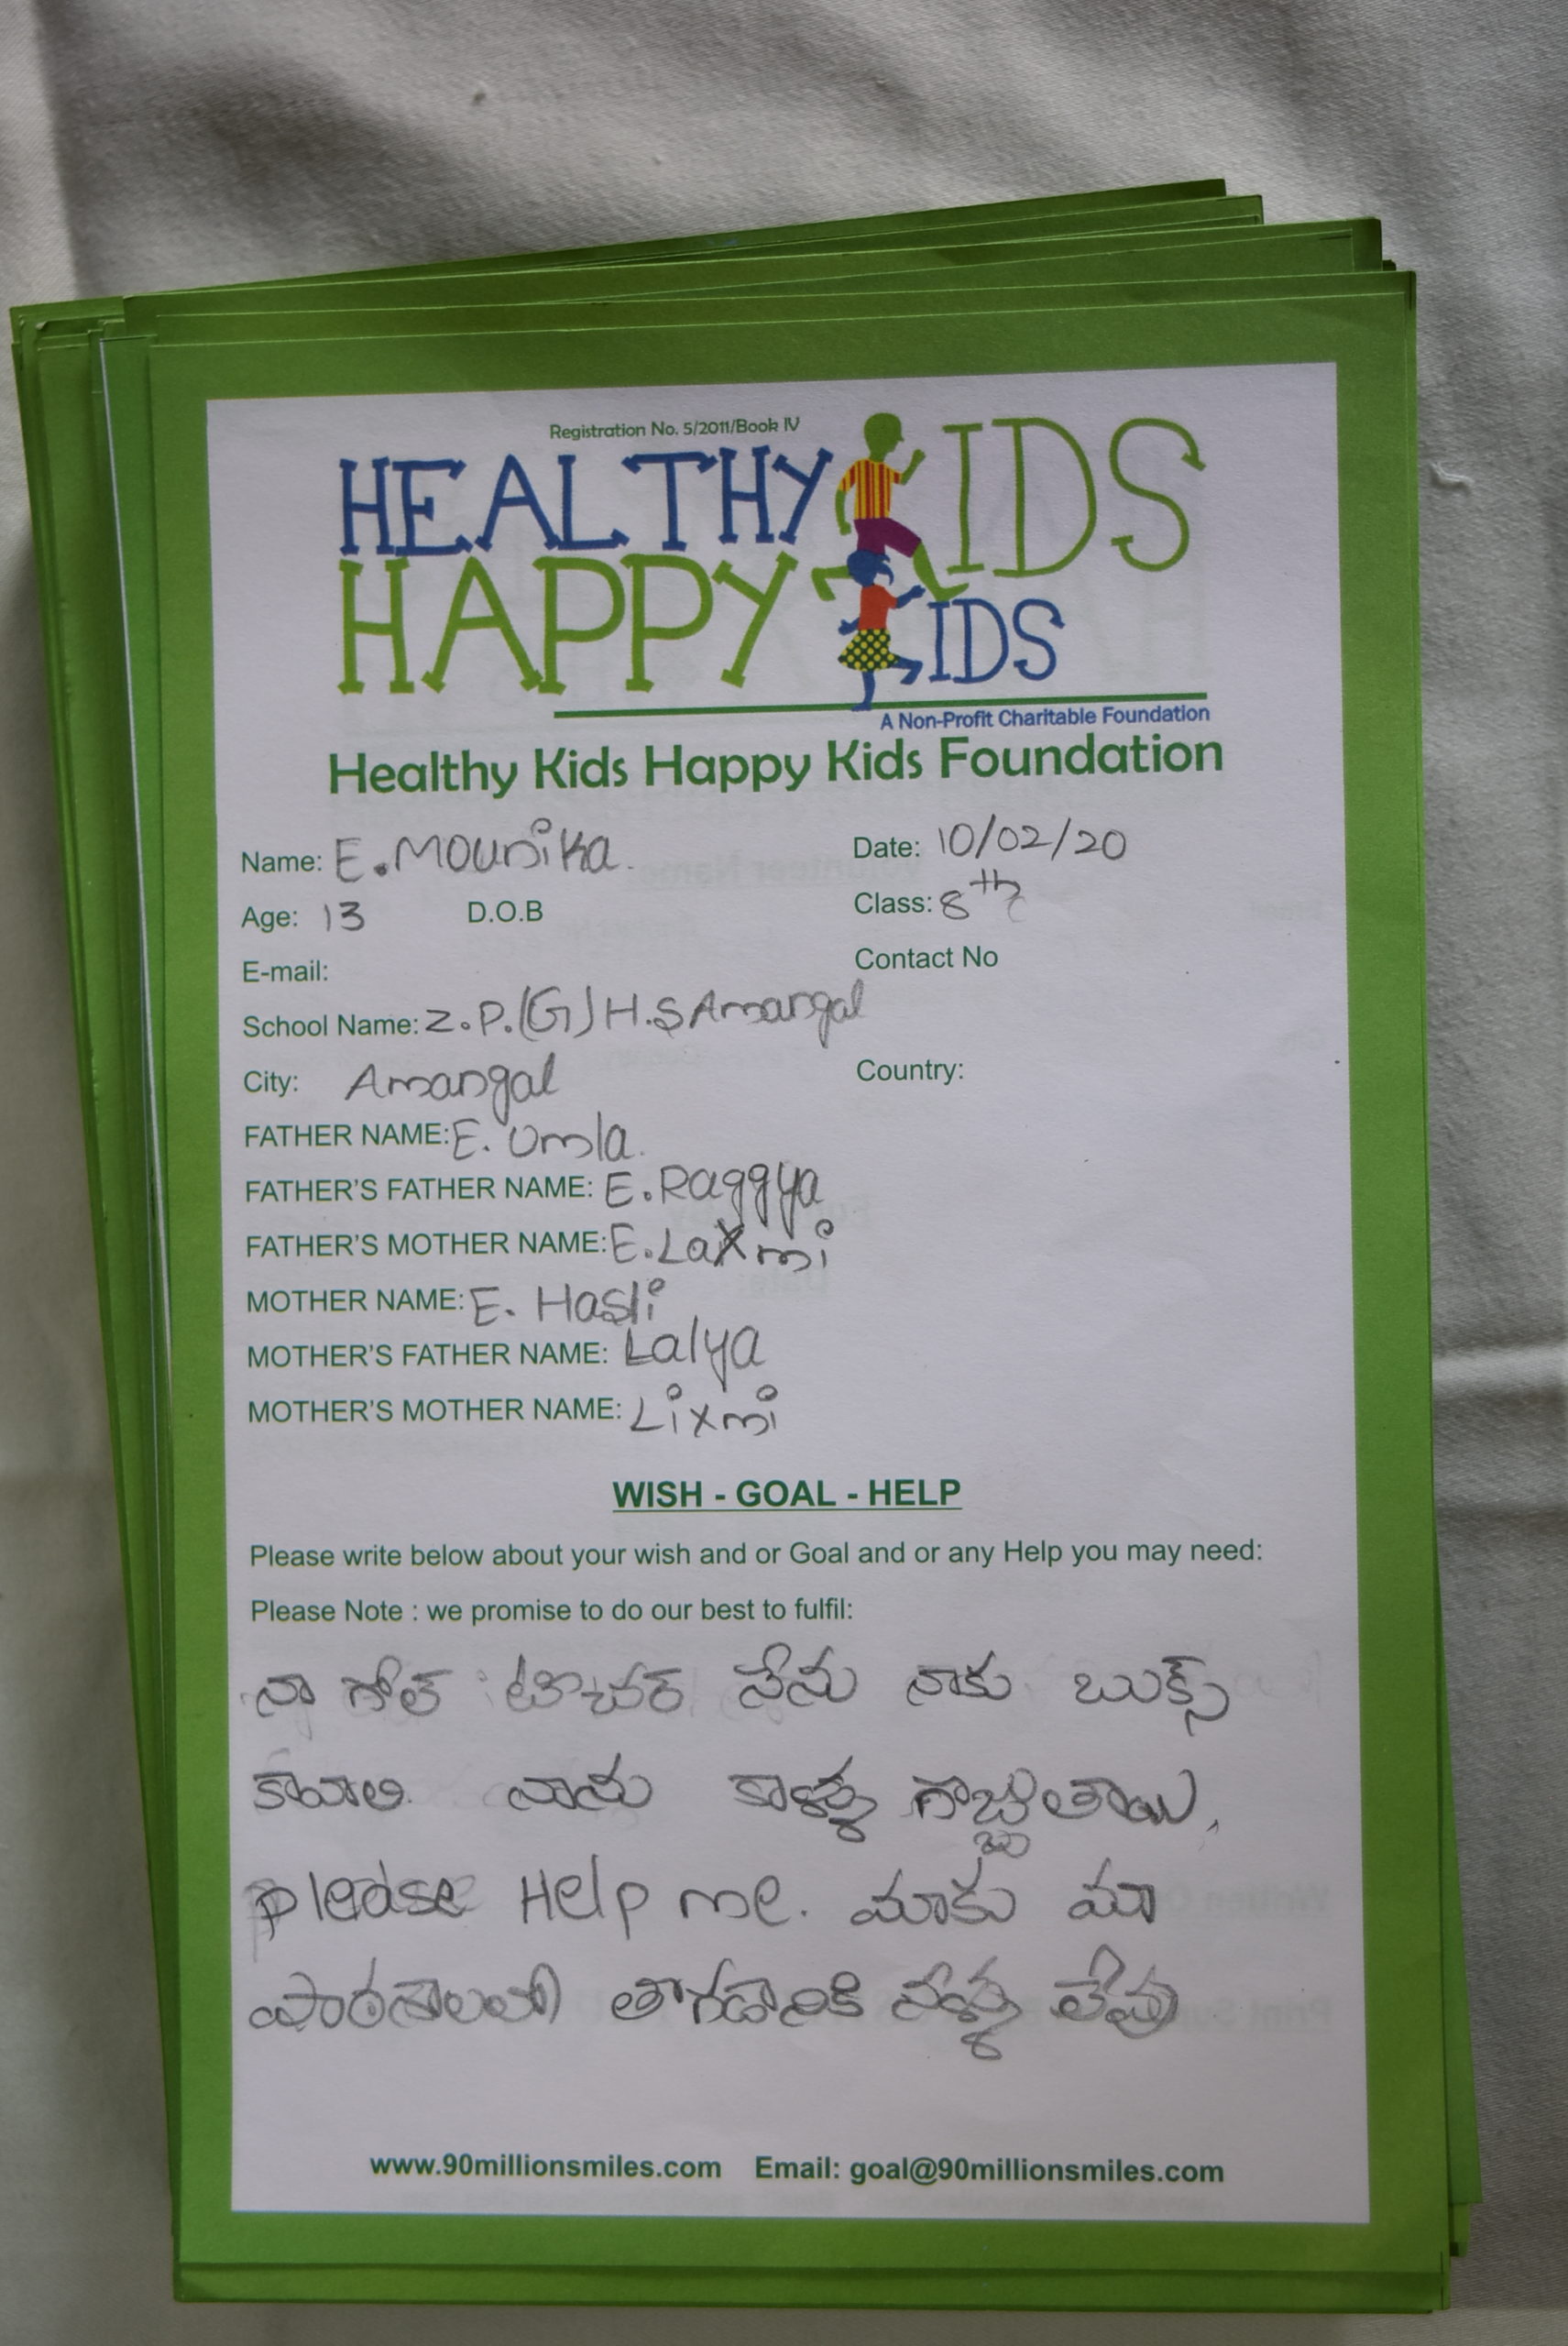 Registration No. 5/2011/Book IV
HEALTHY KIDS
HAPPY KIDS
A Non-Profit Charitable Foundation
Healthy Kids Happy Kids Foundation
Name: E. Mounika. Date: 10/02/20
Age: 13 D.O.B Class: 8th
E-mail: Contact No
School Name: Z.P.(G) H.S Amangal
City: Amangal Country:
FATHER NAME: E. Umla.
FATHER'S FATHER NAME: E. Raggya
FATHER'S MOTHER NAME: E. Laxmi
MOTHER NAME: E. Hasli
MOTHER'S FATHER NAME: Lalya
MOTHER'S MOTHER NAME: Lixmi
WISH - GOAL - HELP
Please write below about your wish and or Goal and or any Help you may need:
Please Note : we promise to do our best to fulfil:
నా గోల్ టీచర్ నేను నాకు బుక్స్
కావాలి నాను కాళ్ళు గొబ్బుతాయి,
please Help me. మాకు మా
పాఠశాలలో తాగడానికి నీళ్ళు లేవు
www.90millionsmiles.com Email: goal@90millionsmiles.com